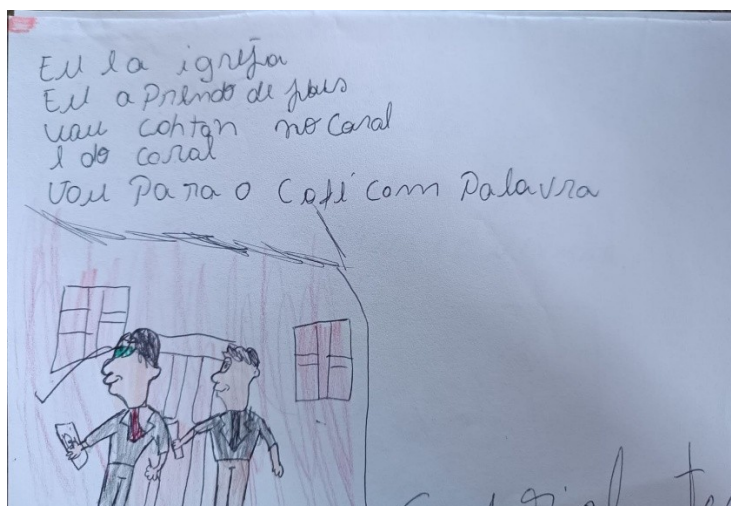 Eu la igreja
Eu aprendo de jaus
vau contan no caral
e do caral
Vou Para o Café com Palavra